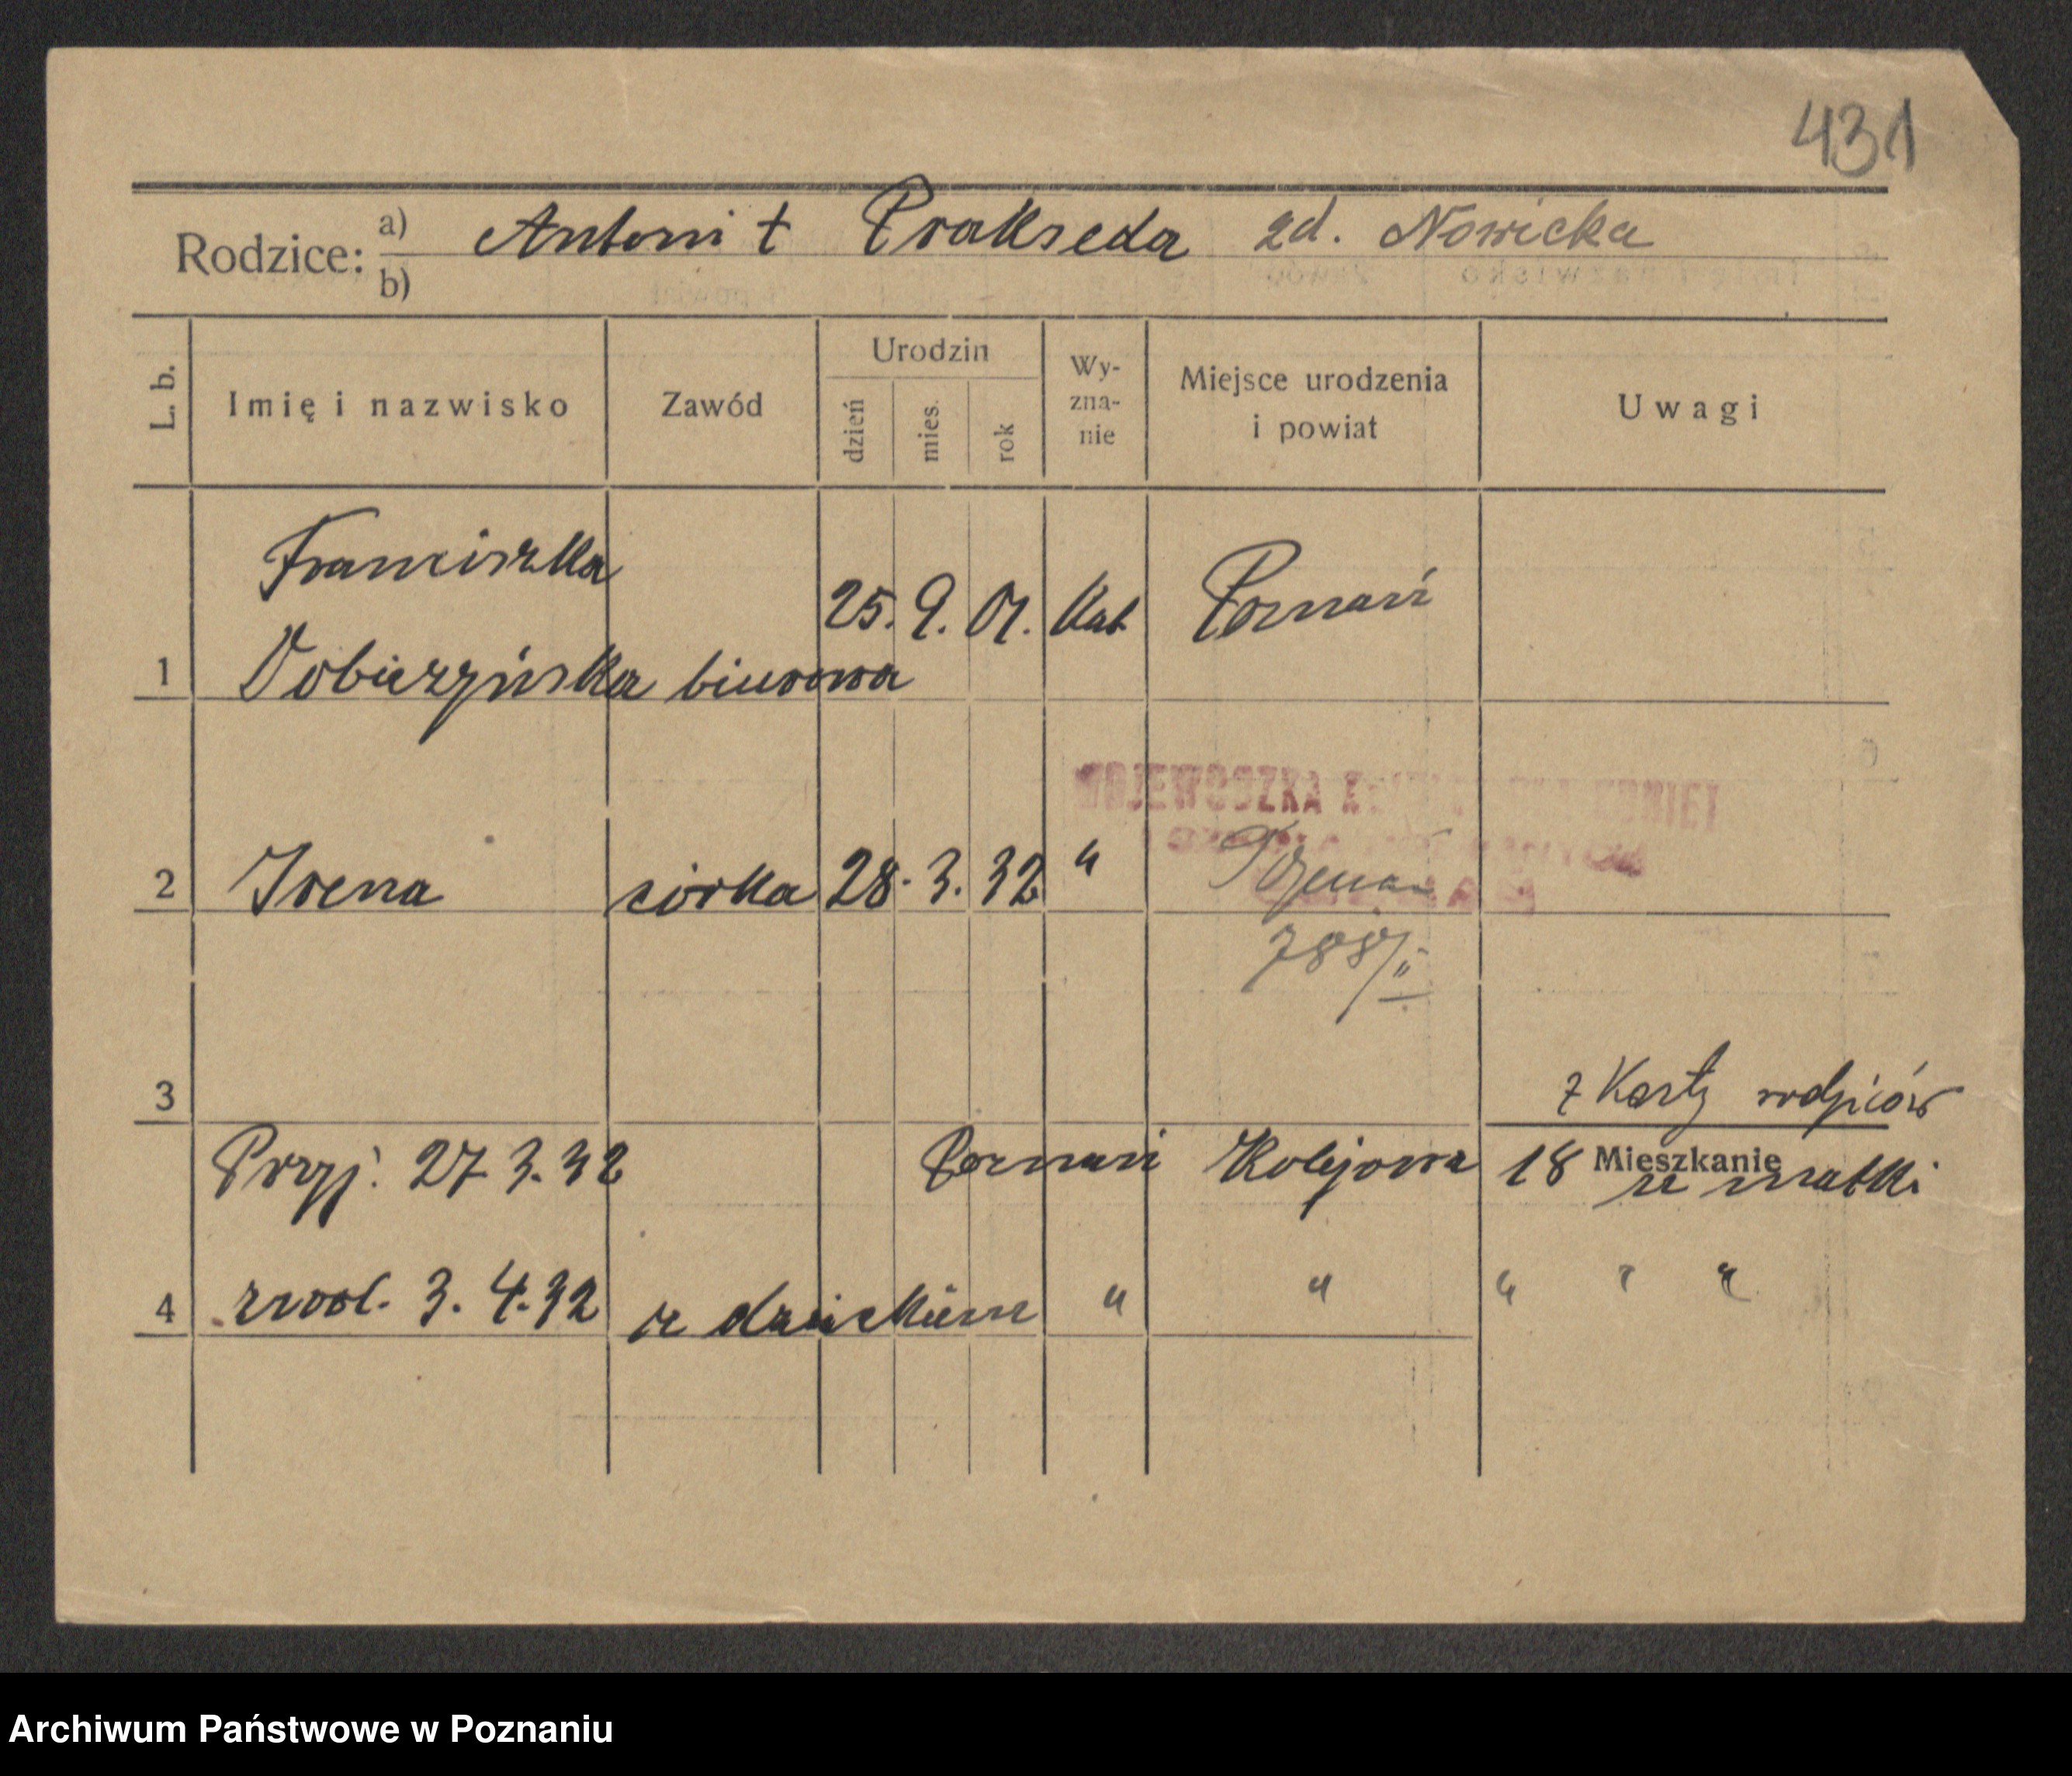 431
Rodzice: a) Antoni † Prakseda zd. Nowicka
b)
L. b. Imię i nazwisko Zawód Urodzin dzień mies. rok Wy-zna-nie Miejsce urodzenia i powiat Uwagi
Franciszka
1 Dobierzyńska biurowa 25. 9. 01. Kat Poznań
WOJEWÓDZKA KOBIET
2 Irena córka 28. 3. 32 " Poznań
788/II
3 z Karty rodziców
Przyj. 27 3. 32 Poznań Kolejowa 18 Mieszkanie u matki
4 zwol. 3. 4. 32 z dzieckiem " " " " "
Archiwum Państwowe w Poznaniu